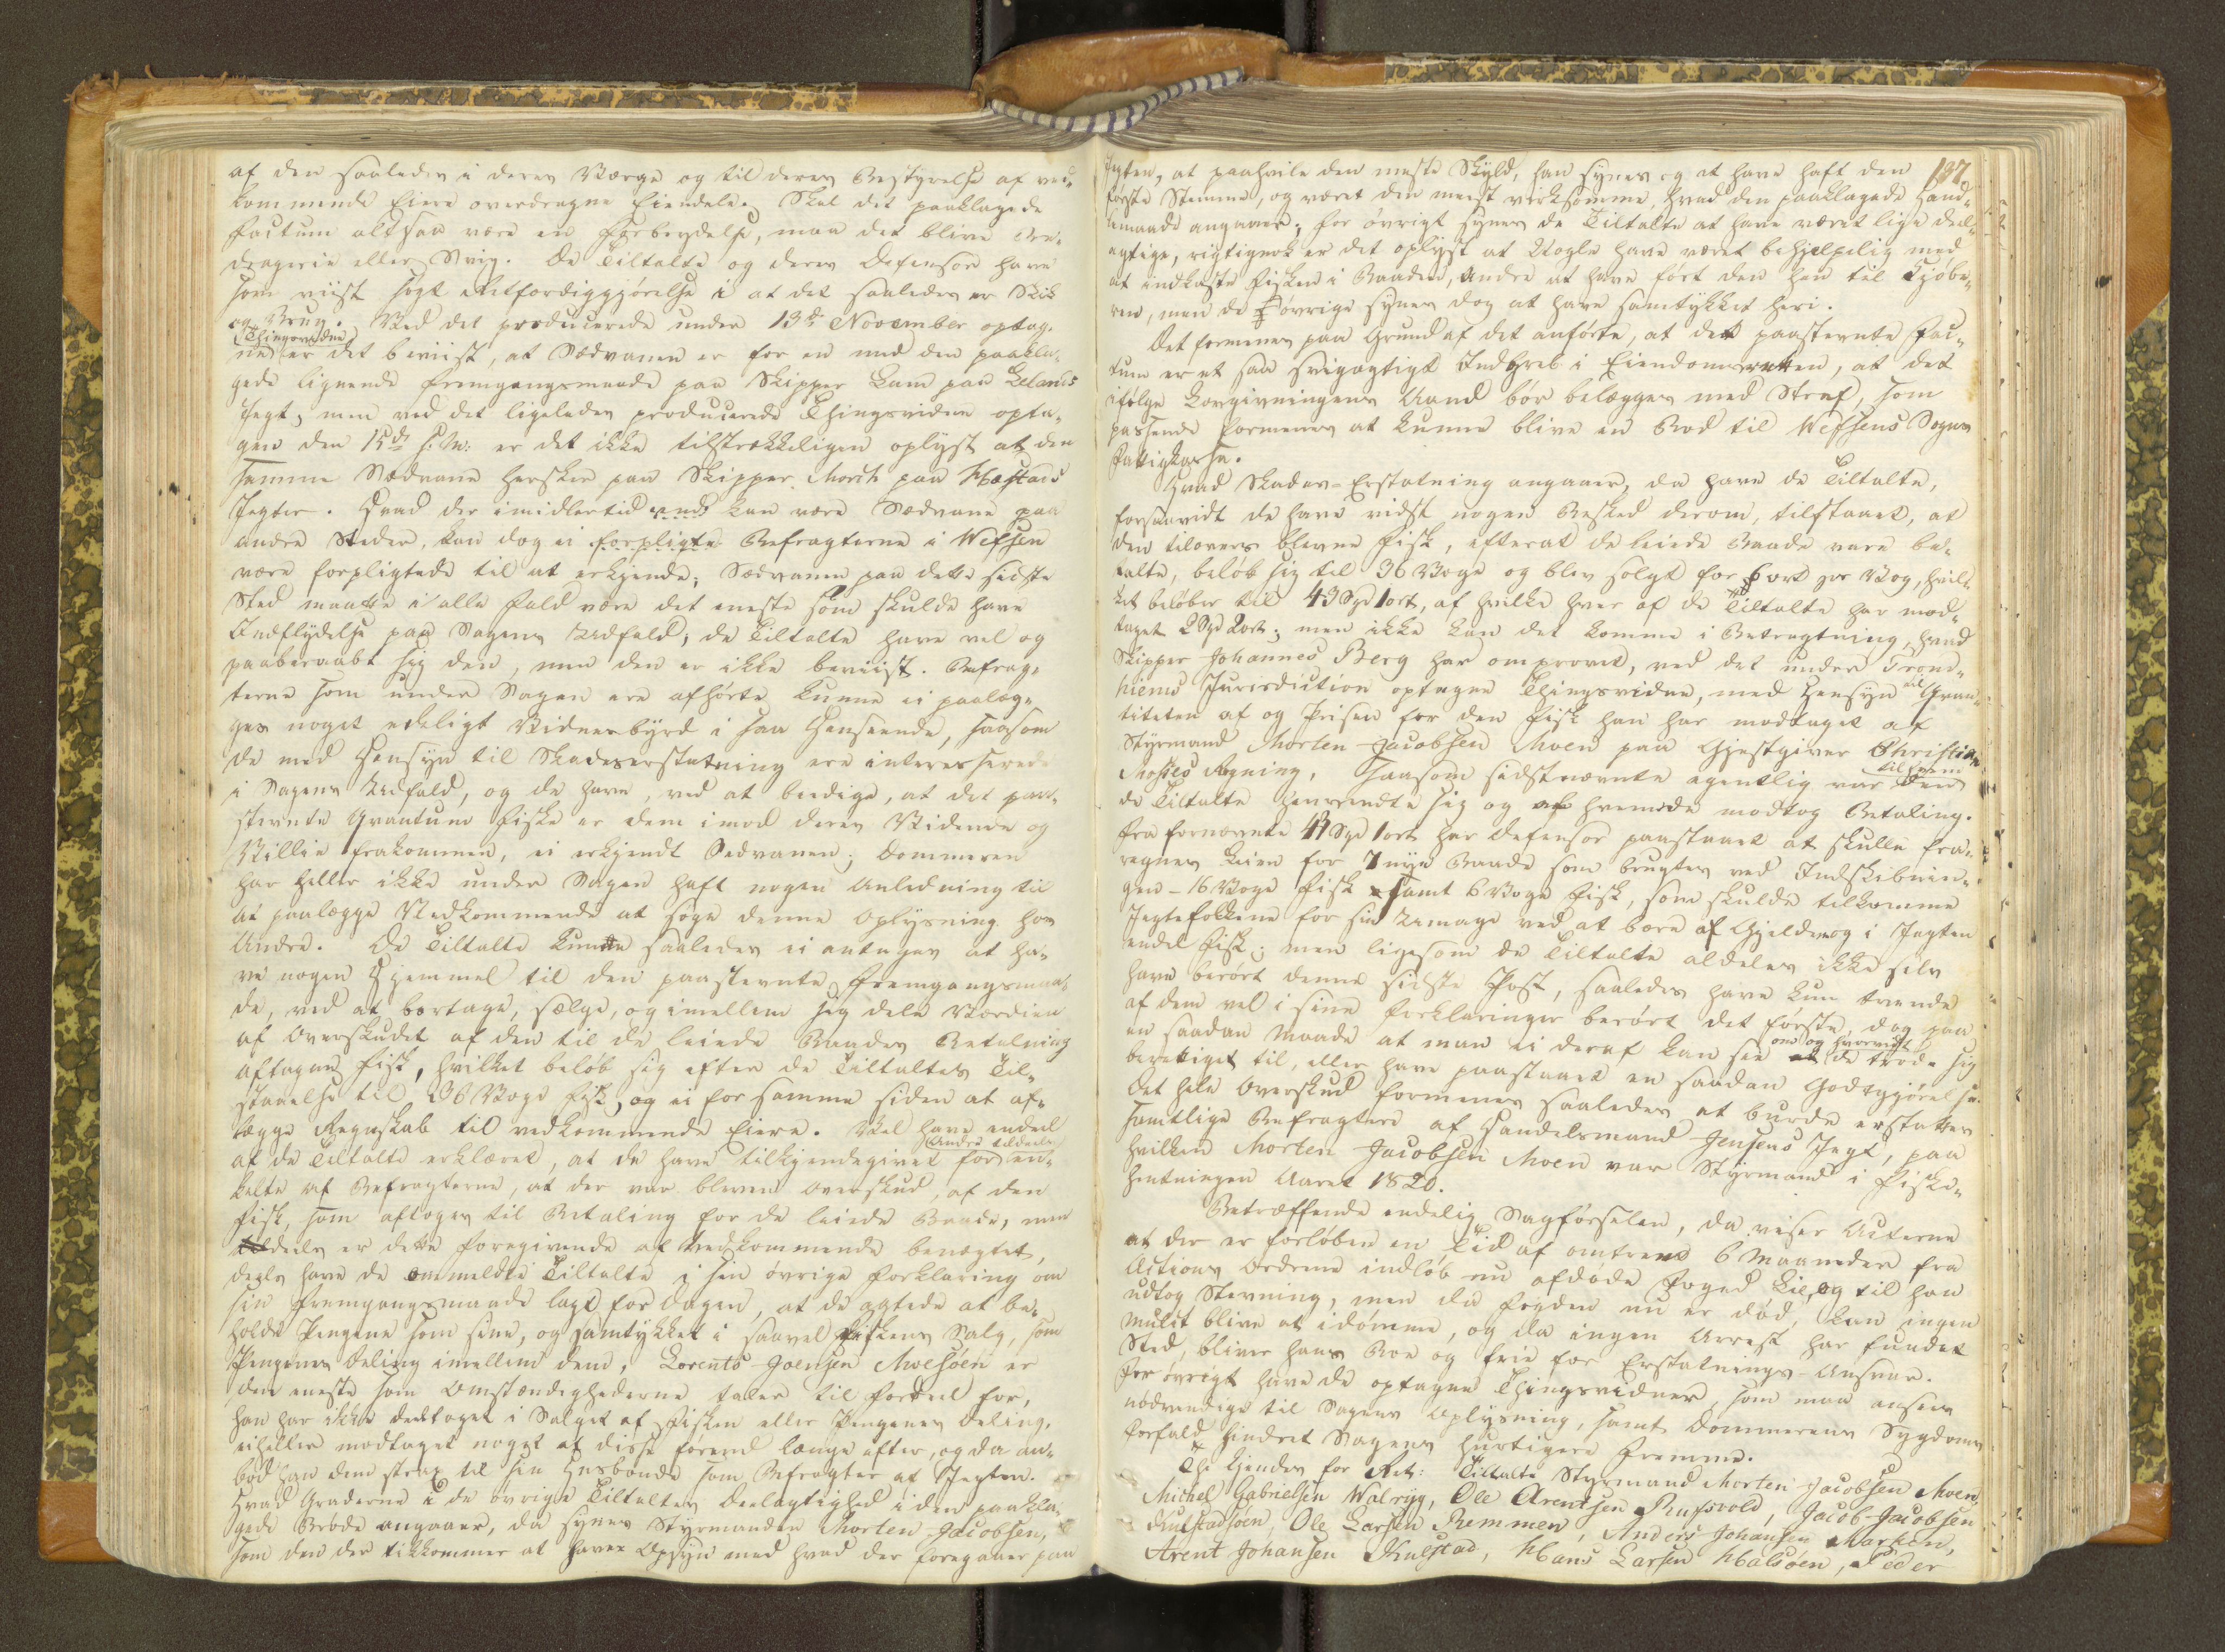 af den saaledes i deres Værge og til deres Bestyrelse af ved-
kommende Eiere overdragne Eiendele. Skal det paaklagede
Factum altsaa være en Forbrydelse, maa det blive Be-
dragerie eller Svig. De Tiltalte og deres Defensor have
som viist søgt Retfærdiggjørelse i at det saaledes er Skik
og Brug. Ved det producerede under 13de November optag-
ne Thingsvidne er det beviist, at Sædvanen er for en med den paakla-
gede lignende Fremgangsmaade paa Skipper Lund paa Lelands
Jægt, men ved det ligeledes producerede Thingsvidne opta-
gen den 15de s: M: er det ikke tilstrækkeligen oplyst at den
samme Sædvane hersker paa Skipper Morch paa
Jægter. Hvad der imidlertid end kan være Sædvane paa
andre Steder, kan dog ei forpligte Befragterne i Wefsen
være forpligtede til at erkjende; Sædvanen paa dette sidste
Sted maatte i alle Fald være det eneste som skulde have
Indflydelse paa Sagens Udfald; de Tiltalte have vel og
paaberaabt sig den, men den er ikke beviist. Befrag-
terne som under Sagen ere afhørte kunne ei paalæg-
ges noget edeligt Vidnesbyrd i saa Henseende, saasom
de med Hensyn til Skadeserstatning ere interesserede
i Sagens Udfald, og de have, ved at beedige, at det paa-
stevnte Qvantum Fiske er dem imod deres Vidende og
Villie frakommen, ei erkjendt Sedvanen; Dommeren
har heller ikke under Sagen haft nogen Anledning til
at paalægge Vedkommende at søge denne Oplysning hos
Andre. De Tiltalte kunne saaledes ei antages at ha-
ve nogen Hjemmel til den paastevnte Fremgangsmaa-
de, ved at borttage, sælge, og imellem sig dele Værdien
af Overskudet af den til de leiede Baades Betalning
aftagne Fisk, hvilket beløb sig efter de Tiltaltes Til-
staaelse til 36 Voge Fisk, og ei for samme siden at af-
lægge Regnskab til vedkommende Eiere. Vel have endeel
af de Tiltalte erklæret, at de have tilkjendegivet for en- Andre tildeels
kelte af Befragterne, at der var bleven Overskud, af den
Fisk, som aftoges til Betaling for de leiede Baade, men
deels er dette foregivende af Vedkommende benægtet,
deels have de ommeldte Tiltalte i sin øvrige Forklaring om
sin Fremgangsmaade lagt for Dagen, at de agtede at be-
holde Pengene som sine, og samtykket i saavel Fiskens Salg, som
Pengenes Deling imellem dem. Lorents Joensen Moesøen er
den eneste som Omstændighederne taler til Fordeel for,
han har ikke deeltaget i Salget af Fisken eller Pengenes Deling,
eiheller modtaget noget af disse førend længe efter, og da an-
bød han dem strax til sin Husbonde som Befragter af Jægten.
Hvad Graderne i de øvrige Tiltaltes Deelagtighed i den paakla-
gede Brøde angaaer, da synes Styrmanden Morten Jacobsen,
som den der tilkommer at have Opsyn med hvad der foregaaer paa
137
Jægten, at paahvile den meste Skyld, han synes og at have haft den
første Stemme, og været den meest virksomme, hvad den paaklagede Hand-
lemaade angaaer; for øvrigt synes de Tiltalte at have været lige deel-
agtige, rigtignok er det oplyst at Nogle have været behjelpelig med
at indkaste Fisken i Baaden, Andre at have ført den hen til Kjøbe-
ren, men de øvrige synes dog at have samtykket heri.
Det formenes paa Grund af det anførte, at det paastevnte Fac-
tum er et saa svigagtigt Indgreb i Eiendomsretten, at det
ifølge Lovgivningens Aand bør belægges med Straf, som
passende formenes at kunne blive en Bod til Wefsens Sogns
Fattigkasse.
Hvad Skades-Erstatning angaaer, da have de Tiltalte,
forsaavidt de have vidst nogen Besked derom, tilstaaet, at
den tilovers blevne Fisk, efterat de leiede Baade vare be-
talte, beløb sig til 36 Voge og blev solgt for 6 ort pr Vog, hvil-
ket beløber til 43 Spd 1 ort, af hvilke hver af de Tiltalte har mod-
taget 2 Spd 2 ort; men ikke kan det komme i Betragtning, hvad
Skipper Johannes Berg har omprovet, ved det under Trond-
hiems Jurisdiction optagne Thingsvidne, med Hensyn til Qvan-
titeten af og Prisen for den Fisk han har modtaget af
Styrmand Morten Jacobsen Moen paa Gjestgiver Christian
Moses Regning, saasom sidstnævnte egentlig var den til hvem
de Tiltalte henvendte sig og af hvem de modtog Betaling.
Fra fornævnte 43 Spd 1 ort har Defensor paastaaet at skulle fra-
regnes Leien for 7 nye Baade som brugtes ved Indskibnin-
gen - 16 Voge Fisk samt 6 Voge Fisk, som skulde tilkomme
Jægtefolkene for sin Umage ved at bære af Gjelder og i Jægten
endel Fisk; men ligesom de Tiltalte aldeles ikke selv
have berørt denne sidste Post, saaledes have kun trende
af dem vel i sine Forklaringer berørt det første, dog paa
en saadan Maade at man ei deraf kan see om og hvorvidt de troede sig
berettiget til, eller have paastaaet en saadan Godtgjørelse.
Det hele Overskud formenes saaledes at burde erstattes
samtlige Befragtere af Handelsmand Jensens Jægt, paa
hvilken Morten Jacobsen Moen var Styrmand i Fiske-
hentningen Aaret 1820.
Betræffende endelig Sagførselen, da viser Acterne
at der er forløben en Tid af omtrend 6 Maaneder fra
Actions Ordrene indløb nu afdøde Foged Lie, og til han
udtog Stevning, men da Fogden nu er død, kan ingen
Mulct blive at idømme, og da ingen Arrest har fundet
Sted, bliver hans Boe og frie for Erstatnings-Ansvar.
For øvrigt have de optagne Thingsvidner, som maa ansees
nødvendige til Sagens Oplysning, samt Dommerens Sygdoms
Forfald hindret Sagens hurtigere Fremme.
Thi kjendes for Ret: Tiltalte Styrmand Morten Jacobsen Moen,
Michel Gabrielsen Walryg, Ole Arentsen Rufsvold, Jacob Jacobsen
Kulstadsøen, Ole Larsen Remmen, Anders Johansen Marken,
Arent Johansen Kulstad, Hans Larsen Halsøen, Peder